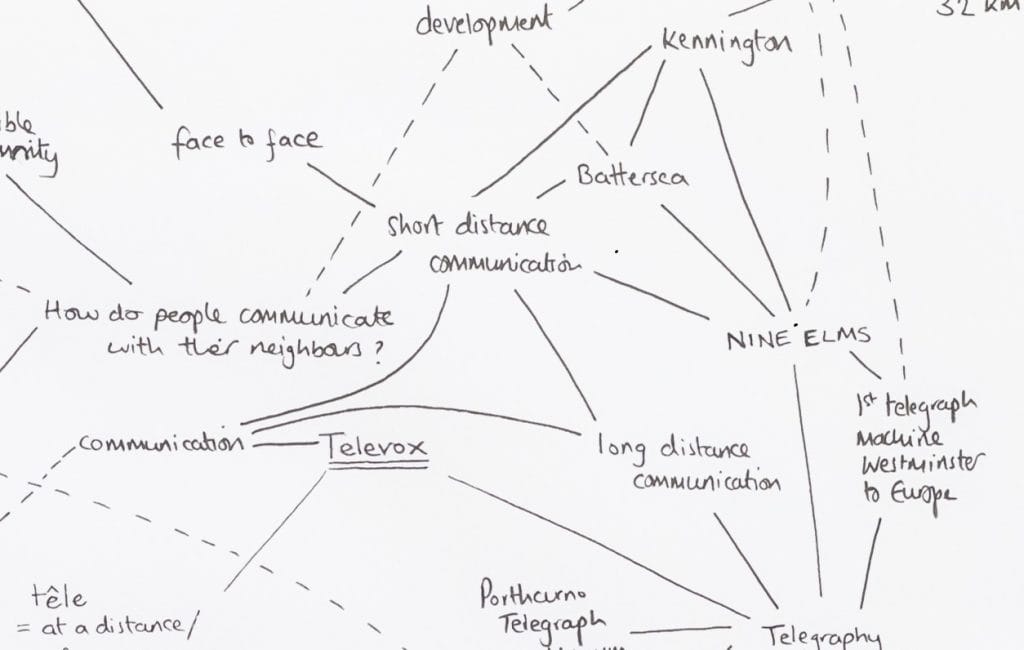 32 km
development
Kennington
face to face
Battersea
short distance
communication
How do people communicate
with their neighbours?
NINE ELMS
1st telegraph
machine
Westminster
to Europe
communication
Televox
long distance
communication
têle
= at a distance/
Porthcurno
Telegraph
Telegraphy